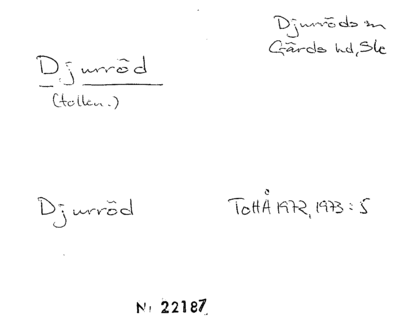 Djurröds sn
Gärds hd, Sk
Djurröd
(tolkn.)
Djurröd
ToHÅ 1972, 1973:5
N: 22187